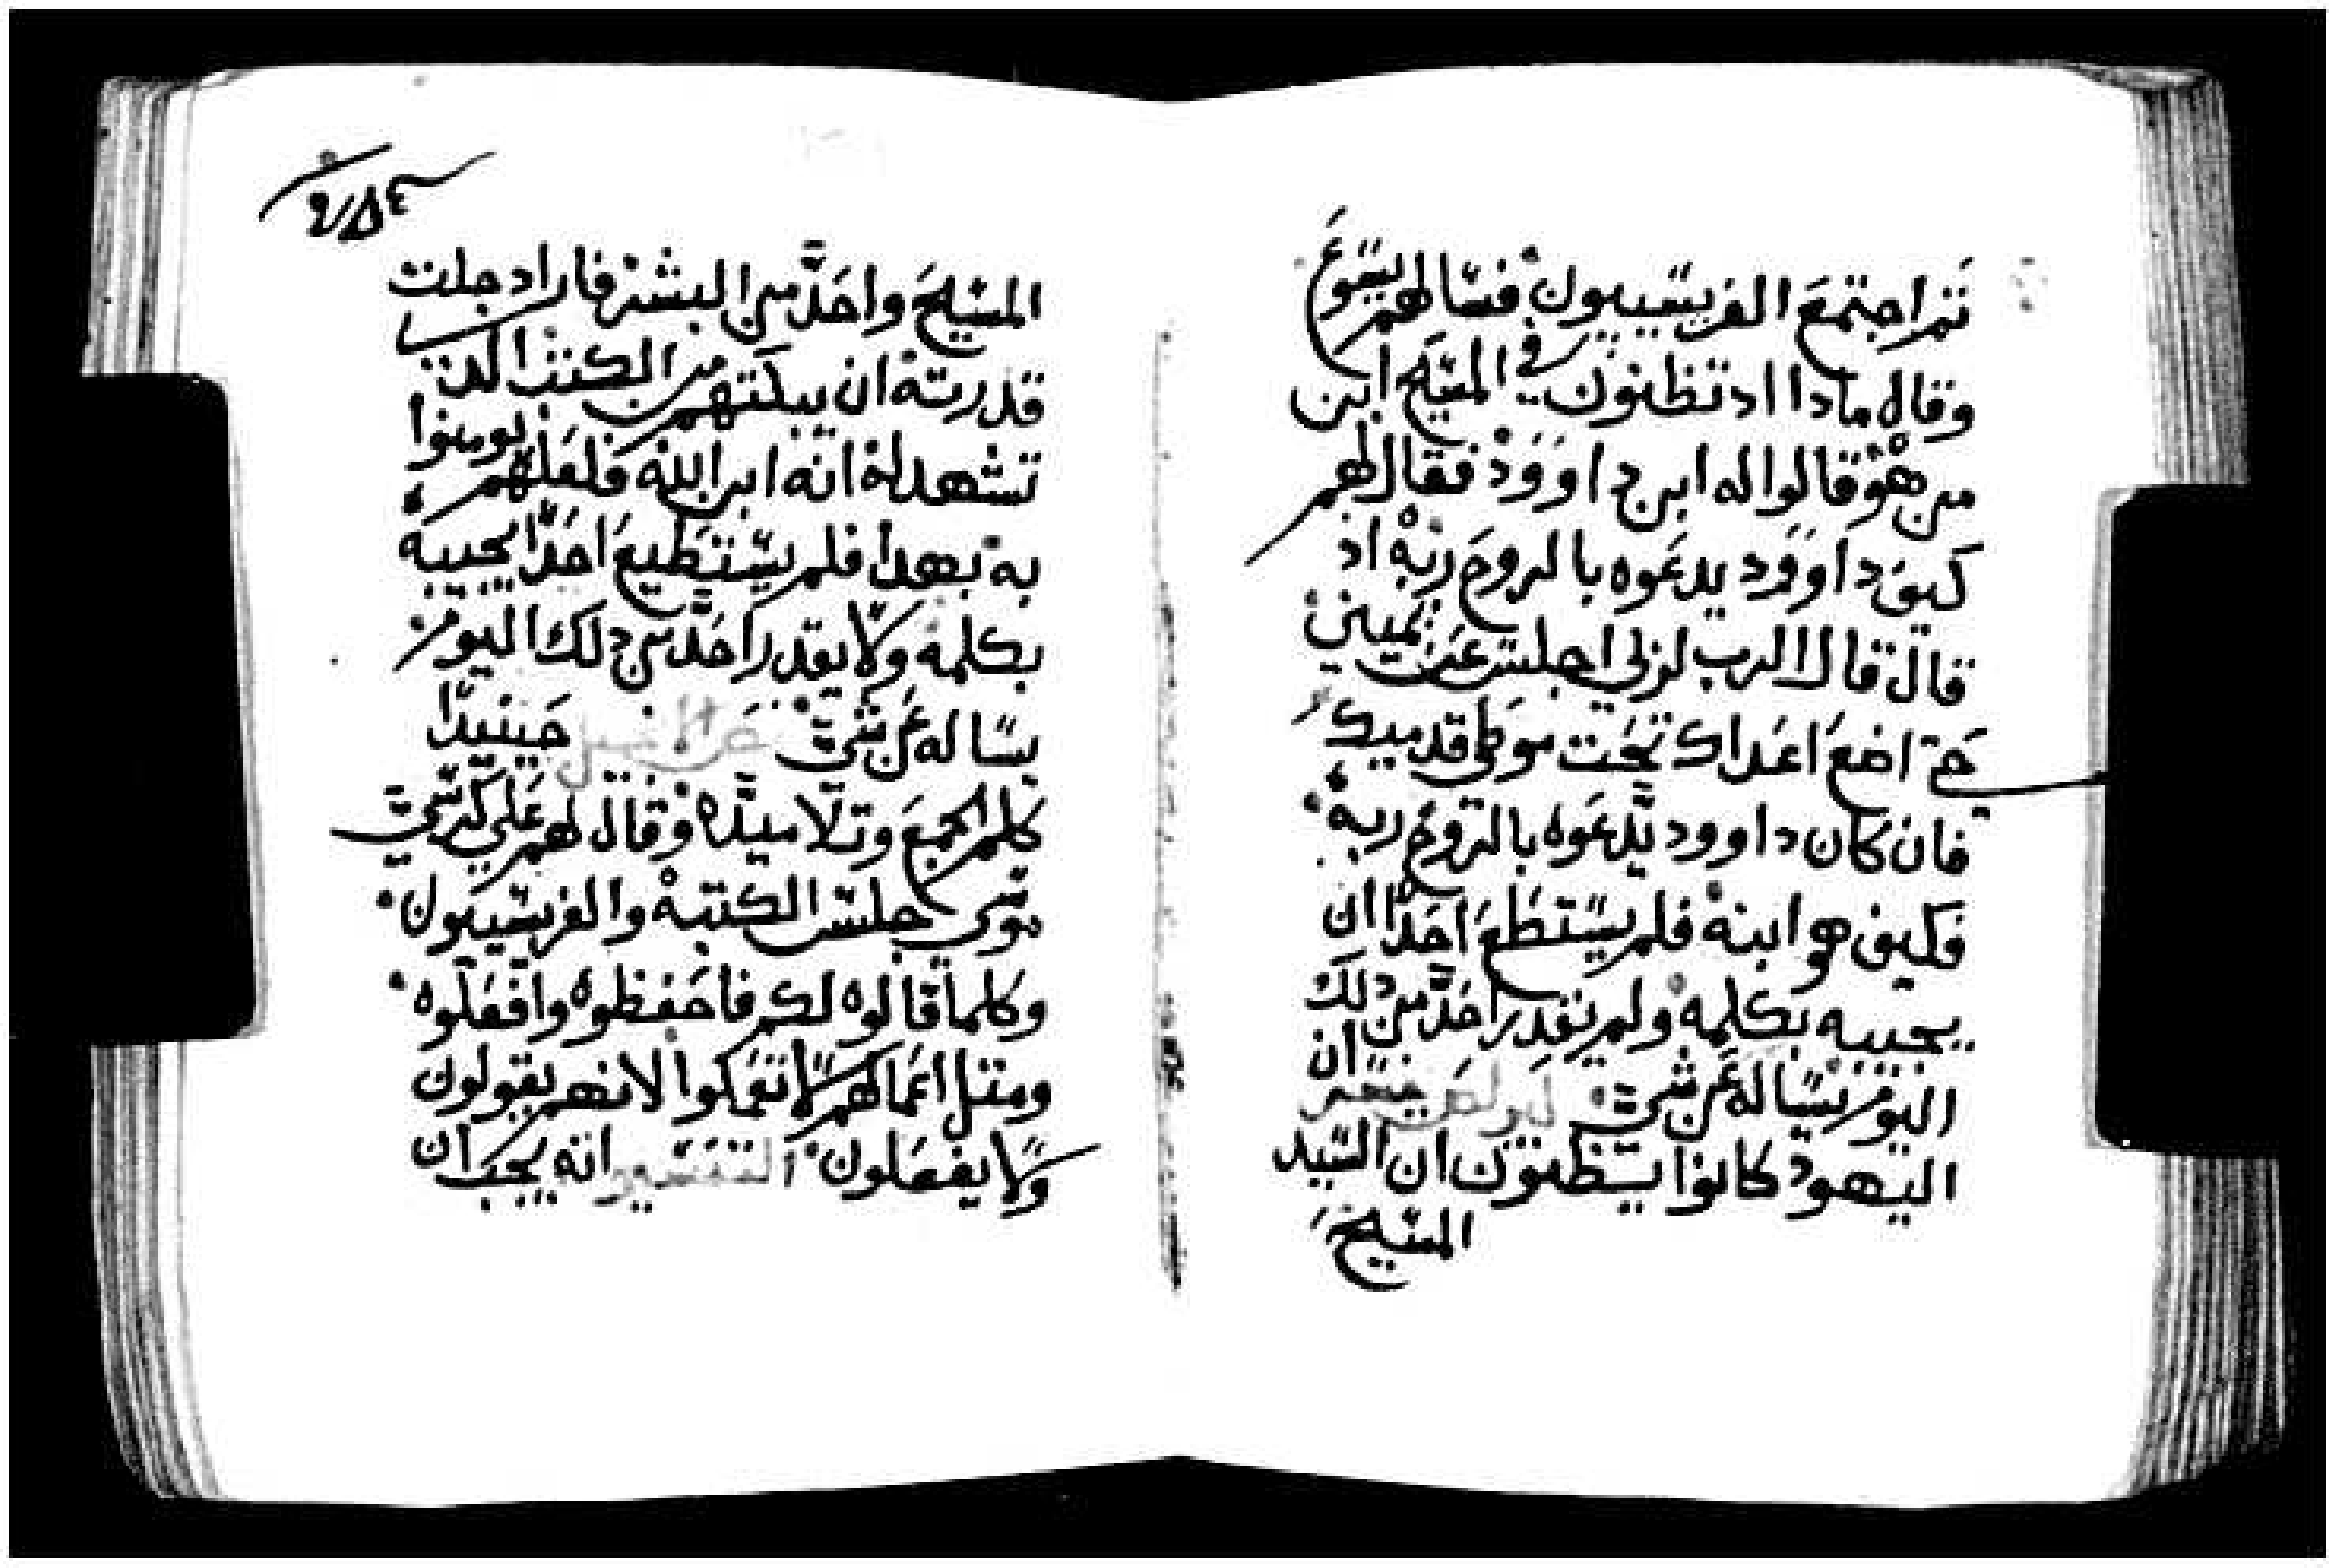 ثم اجتمع الفريسيون فسالهم يسوع
وقال مادا ادتظنون في المسيح ابن
من هو قالوا له ابن داوود فقال لهم
كيف داوود يدعوه بالروح ربه اذ
قال قال الرب لربي اجلس عن يميني
حتى اضع اعداك تحت موطي قدميك
فان كان داوود يدعوه بالروح ربه
فكيف هو ابنه فلم يستطع احدا ان
يجيبه بكلمه ولم يقدر احد من دلك
اليوم يساله عن شي ان
اليهود كانوا يظنون ان السيد
المسيح
المسيح واحد من البشر فاراد جلت
قدرته ان يبكتهم من الكتب التي
تشهد له انه ابن الله فلعلهم يومنوا
به بهدا فلم يستطيع احدا يجيبه
بكلمه ولا يقدر احد من دلك اليوم
يساله عن شي حينيدا
كلم الجمع وتلاميده وقال لهم على كرسي
موسى جلس الكتبه والفريسيون
وكلما قالوه لكم فاحفظوه وافعلوه
ومتل اعمالهم لا تعملوا لانهم يقولون
ولا يفعلون التفسير انه يجب ان